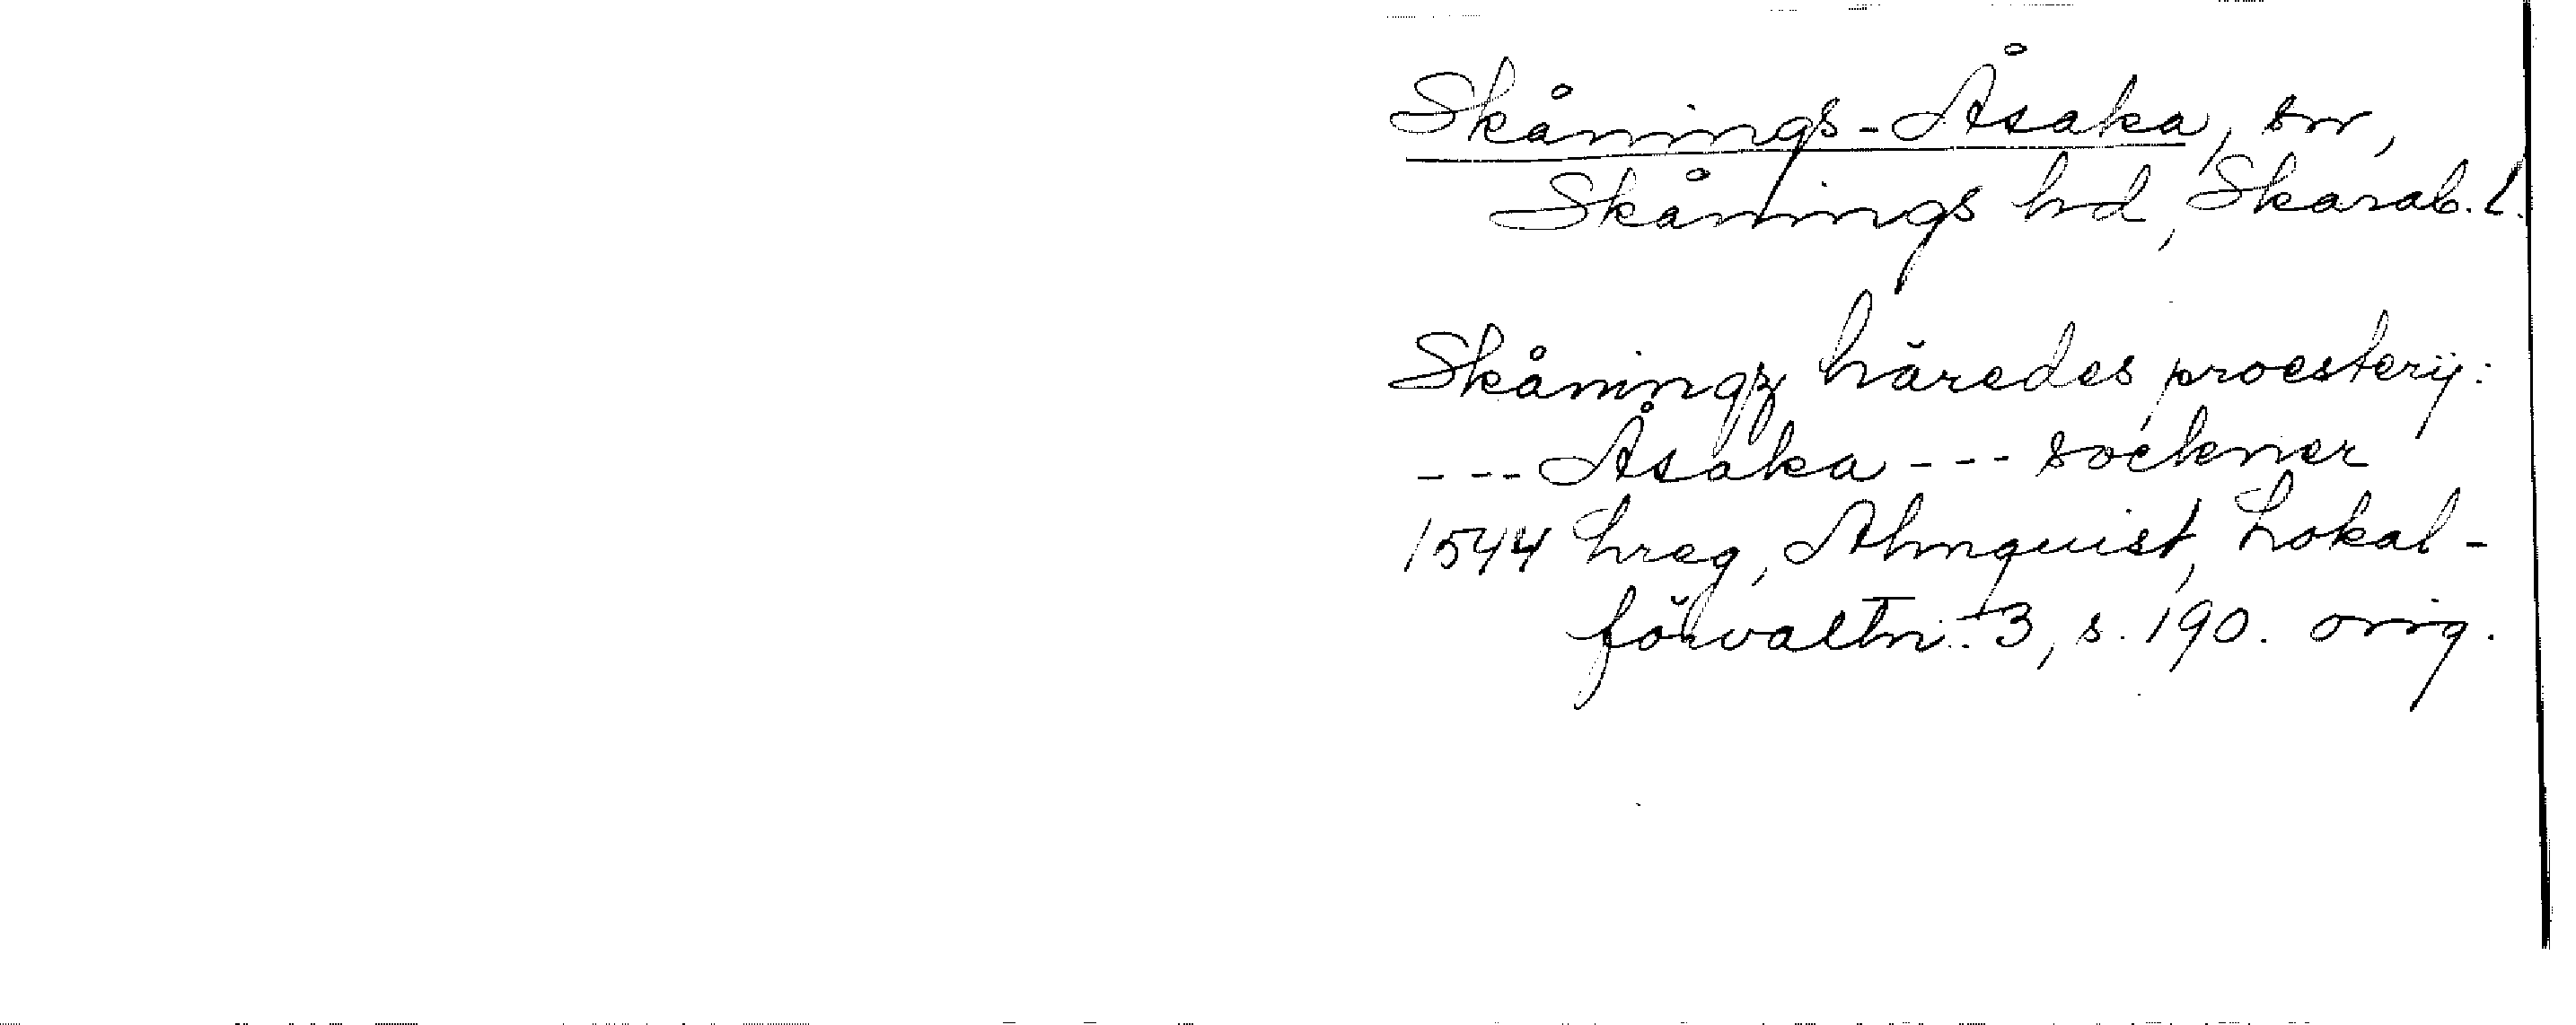 Skånings-Åsaka, sn,
Skånings hd, Skarab. l.
Skåningz häredes proesterij:
--- Åsaka --- sockner
1544 hreg, Almquist, Lokal-
förvaltn. 3, s. 190. orig.